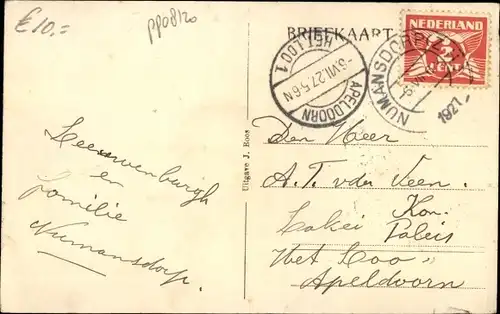 £10.=
pp08120
BRIEFKAART
NEDERLAND
2 CENT
APELDOORN
-6.VII.27.5-6N
HET LOO 1
NUMANSDORP
1927
Uitgave J. Roos
Leeuwenburgh
en
familie
Numansdorp.
Den Heer
A. T. v der Veen.
Kon.
Lakei Paleis
Het Loo
Apeldoorn